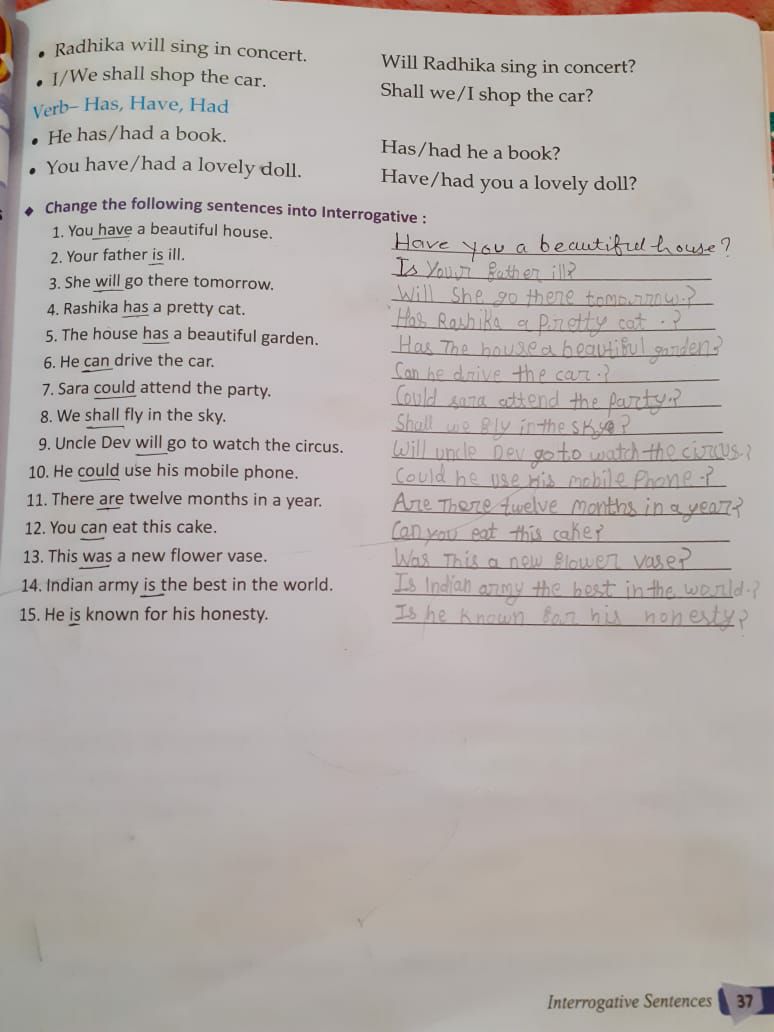 • Radhika will sing in concert. Will Radhika sing in concert?
• I/We shall shop the car. Shall we/I shop the car?
Verb– Has, Have, Had
• He has/had a book. Has/had he a book?
• You have/had a lovely doll. Have/had you a lovely doll?
◆ Change the following sentences into Interrogative :
1. You have a beautiful house. Have you a beautiful house?
2. Your father is ill. Is your father ill?
3. She will go there tomorrow. Will She go there tomorrow.?
4. Rashika has a pretty cat. Has Rashika a Piretty cat .?
5. The house has a beautiful garden. Has The house a beautiful garden?
6. He can drive the car. Can he drive the car.?
7. Sara could attend the party. Could sara attend the Party.?
8. We shall fly in the sky. Shall we fly in the skye?
9. Uncle Dev will go to watch the circus. Will uncle Dev go to watch the circus?
10. He could use his mobile phone. Could he use His mobile Phone.?
11. There are twelve months in a year. Are There twelve months in a year?
12. You can eat this cake. Can you eat this cake?
13. This was a new flower vase. Was This a new flower vase?
14. Indian army is the best in the world. Is Indian army the best in the world.?
15. He is known for his honesty. Is he known for his honesty?
Interrogative Sentences 37